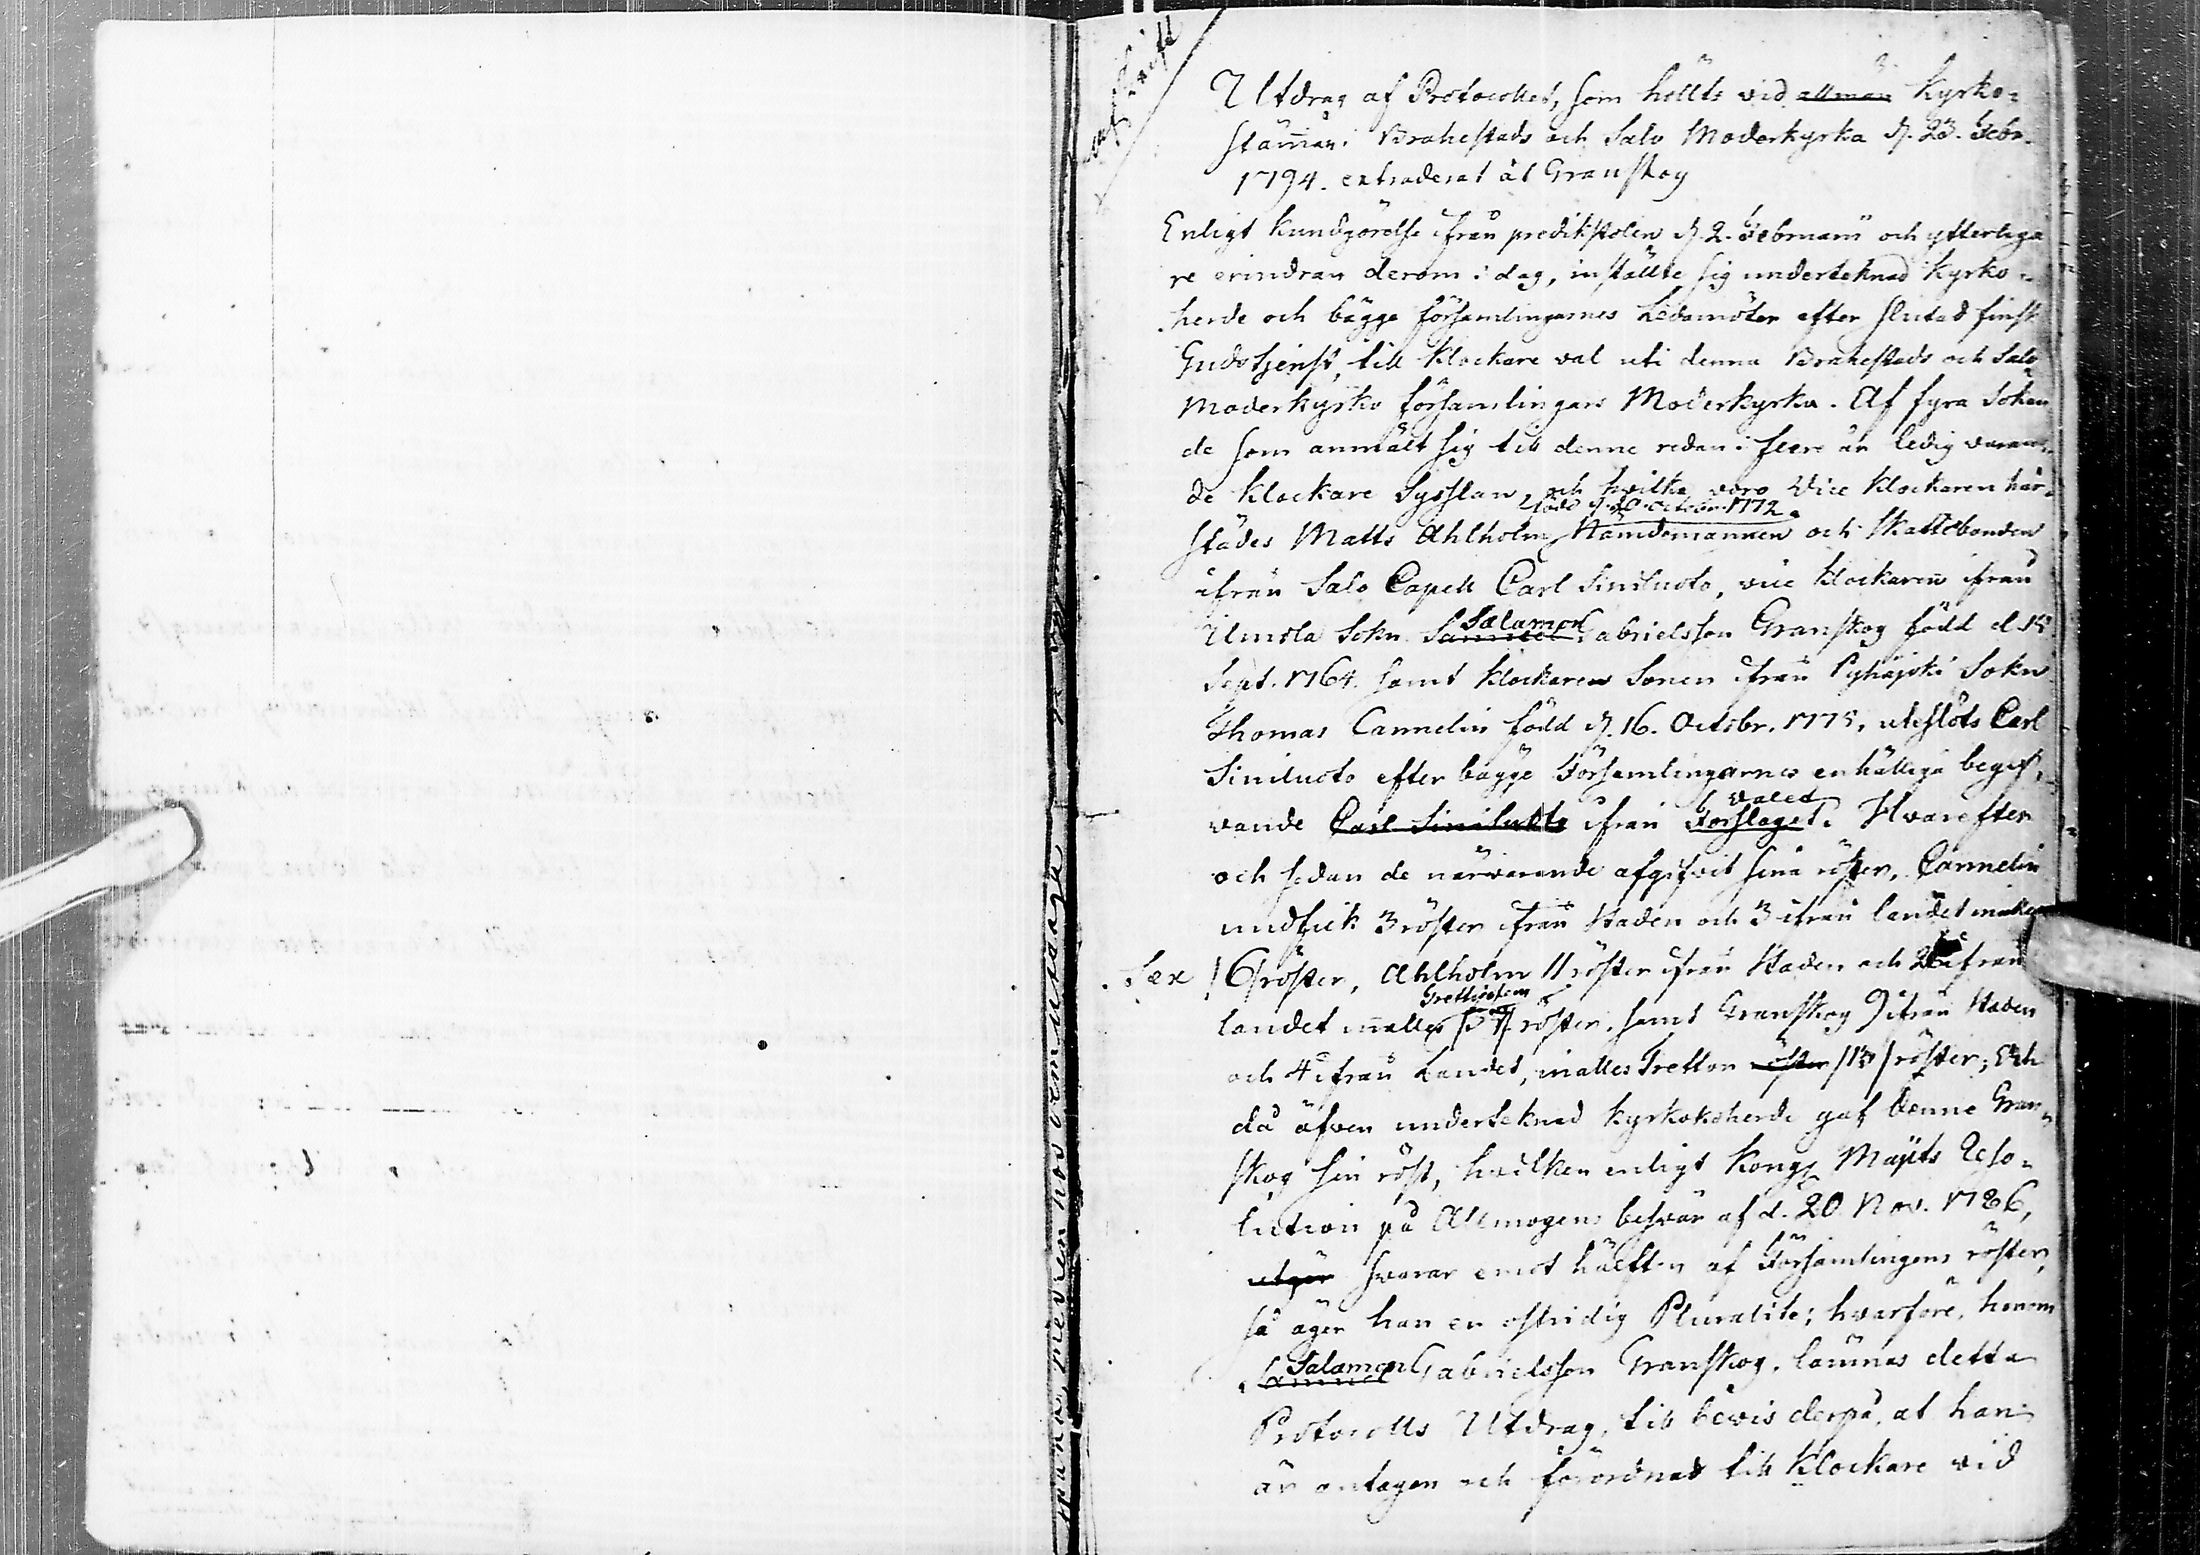 Utdrag af Protocollet, som hållts vid allmän Kyrko-
stämma i Brahestads och Salo Moderkyrka d. 23. Febr.
1794. extraderat åt Granskog
Enligt kundgörelse ifrån predikstolen d. 2. Februarii och ytterliga
re erindran derom i dag, inställte sig underteknad Kyrko-
herde och bägge församlingarnes Ledamöter efter slutad finsk
Gudstjenst, till Klockare val uti denna Brahestads och Salo
Moderkyrko församlingars Moderkyrka. Af fyra Söken
de som anmält sig till denne redan i flere år ledig varan-
de Klockare Sysslan, och hvilka voro Vice Klockaren här-
född d. 20 Octobr. 1772
städes Matts Ahlholm, Nämdemannen och Skattebonden
ifrån Salo Capell Carl Siniluoto, vice Klockaren ifrån
Salamon
Ilmola Sokn Samuel Gabrielsson Granskog född d.
Sept. 1764. samt Klockare Sonen ifrån Pyhäjoki Sokn
Thomas Cannelin född d. 16. Octobr. 1775, uteslöts Carl
Siniluoto efter bägge Församlingarnes enhälliga begif-
valet
vande Carl Siniluoto ifrån Förslaget. Hvarefter
och sedan de närvarande afgifvit sina röster, Cannelin
undfick 3 röster ifrån Staden och 3 ifrån landet
Sex /6/ röster, Ahlholm 11 röster ifrån Staden och ifrån
Trettiofem
landet inalles röster, samt Granskog 9 ifrån Staden
och 4 ifrån Landet, inalles Tretton /13/ röster; Och
då äfven underteknad Kyrkokoherde gaf denne Gran-
skog sin röst, hvilken enligt Kongl. Maijts Reso-
lution på Allmogens besvär af d. 20 Nov. 1786,
utgör svarar emot hälften af Församlingens röster,
så äger han en ostridig Pluralite; hvarföre, honom
Salamon
Samuel Gabrielsson Granskog, lämnas detta
Protocolls Utdrag, till bevis derpå, at han
är antagen och förordnad till Klockare vid